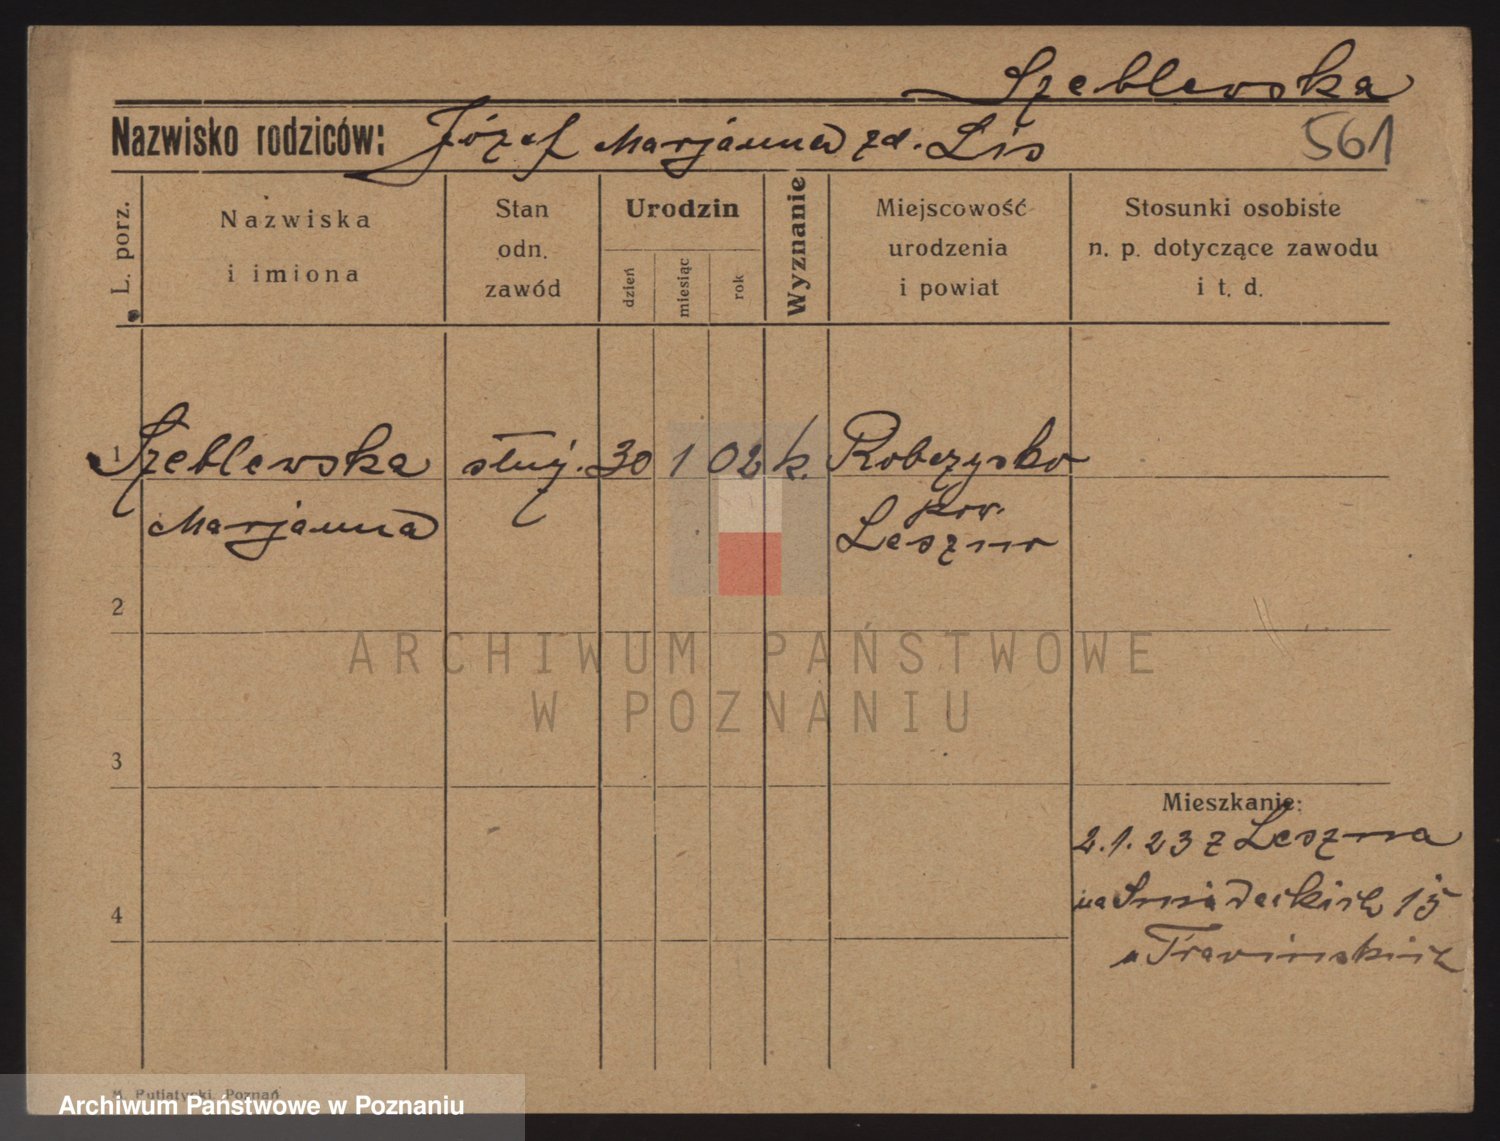 Szeblewska
Nazwisko rodziców: Józef Marjanna zd. Lis
561
L. porz.
Nazwiska
i imiona
Stan
odn.
zawód
Urodzin
dzień
miesiąc
rok
Wyznanie
Miejscowość
urodzenia
i powiat
Stosunki osobiste
n. p. dotyczące zawodu
i t. d.
1 Szeblewska służ. 30 1 02 k. Robczysko
Marjanna
pow.
Leszno
2
ARCHIWUM PAŃSTWOWE
W POZNANIU
3
Mieszkanie:
2.1.23 z Leszna
na Śniadeckich 15
4
Poznań
Archiwum Państwowe w Poznaniu